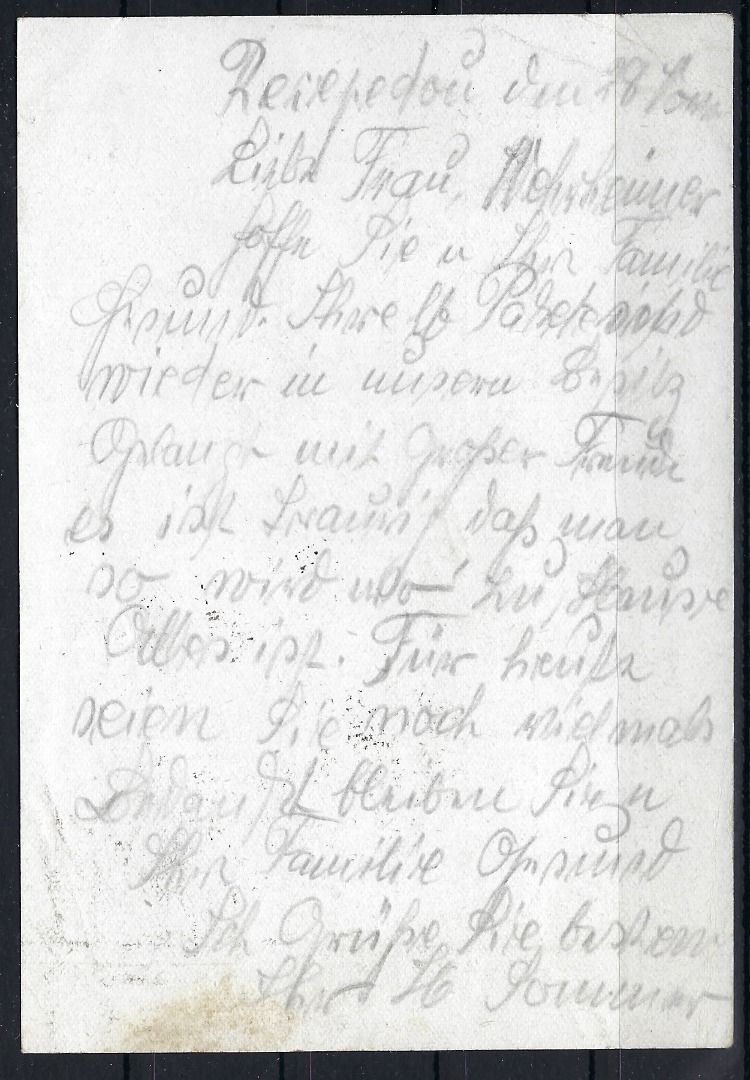 Récépédou den 28
Liebe Frau
hoffe Sie u Ihre Familie
Gesund. Ihre lb Pakete sind
wieder in unsern Besitz
Gelangt mit Großer Freude
es ist traurig daß man
so wird wo zu Hause
Alles ist. Für heute
seien Sie noch vielmals
Bedankt bleiben Sie u
Ihre Familie Gesund
Ich Grüße Sie bestens
Ihr Sommer